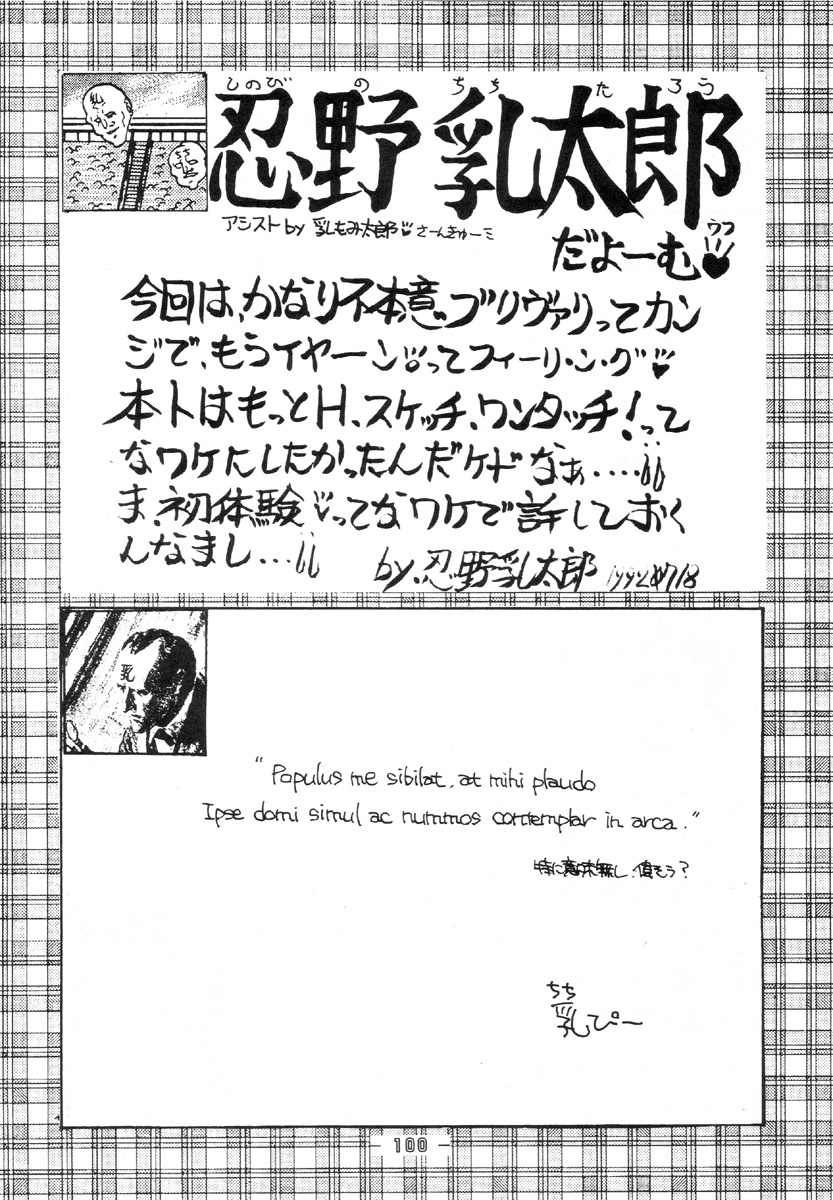 しのび の ちち た ろう
忍野 乳太郎
アシスト by 乳もみ太郎 さーんきゅーミ
だよーむ
ウフ
今回は、かなり不本意ブリヴァリってカン
ジで、もうイヤーンってフィーリ・ン・グ
本トはもっとH、スケッチ、ワンタッチ!って
なワケにしたかったんだケドなぁ....
ま、初体験ってなワケで許しておく
んなまし...
by. 忍野乳太郎 1992 7/18
乳
"Populus me sibilat, at mihi plaudo
Ipse domi simul ac nummos contemplar in arca."
特に意味無し、偉そう?
ちち
乳ぴー
100